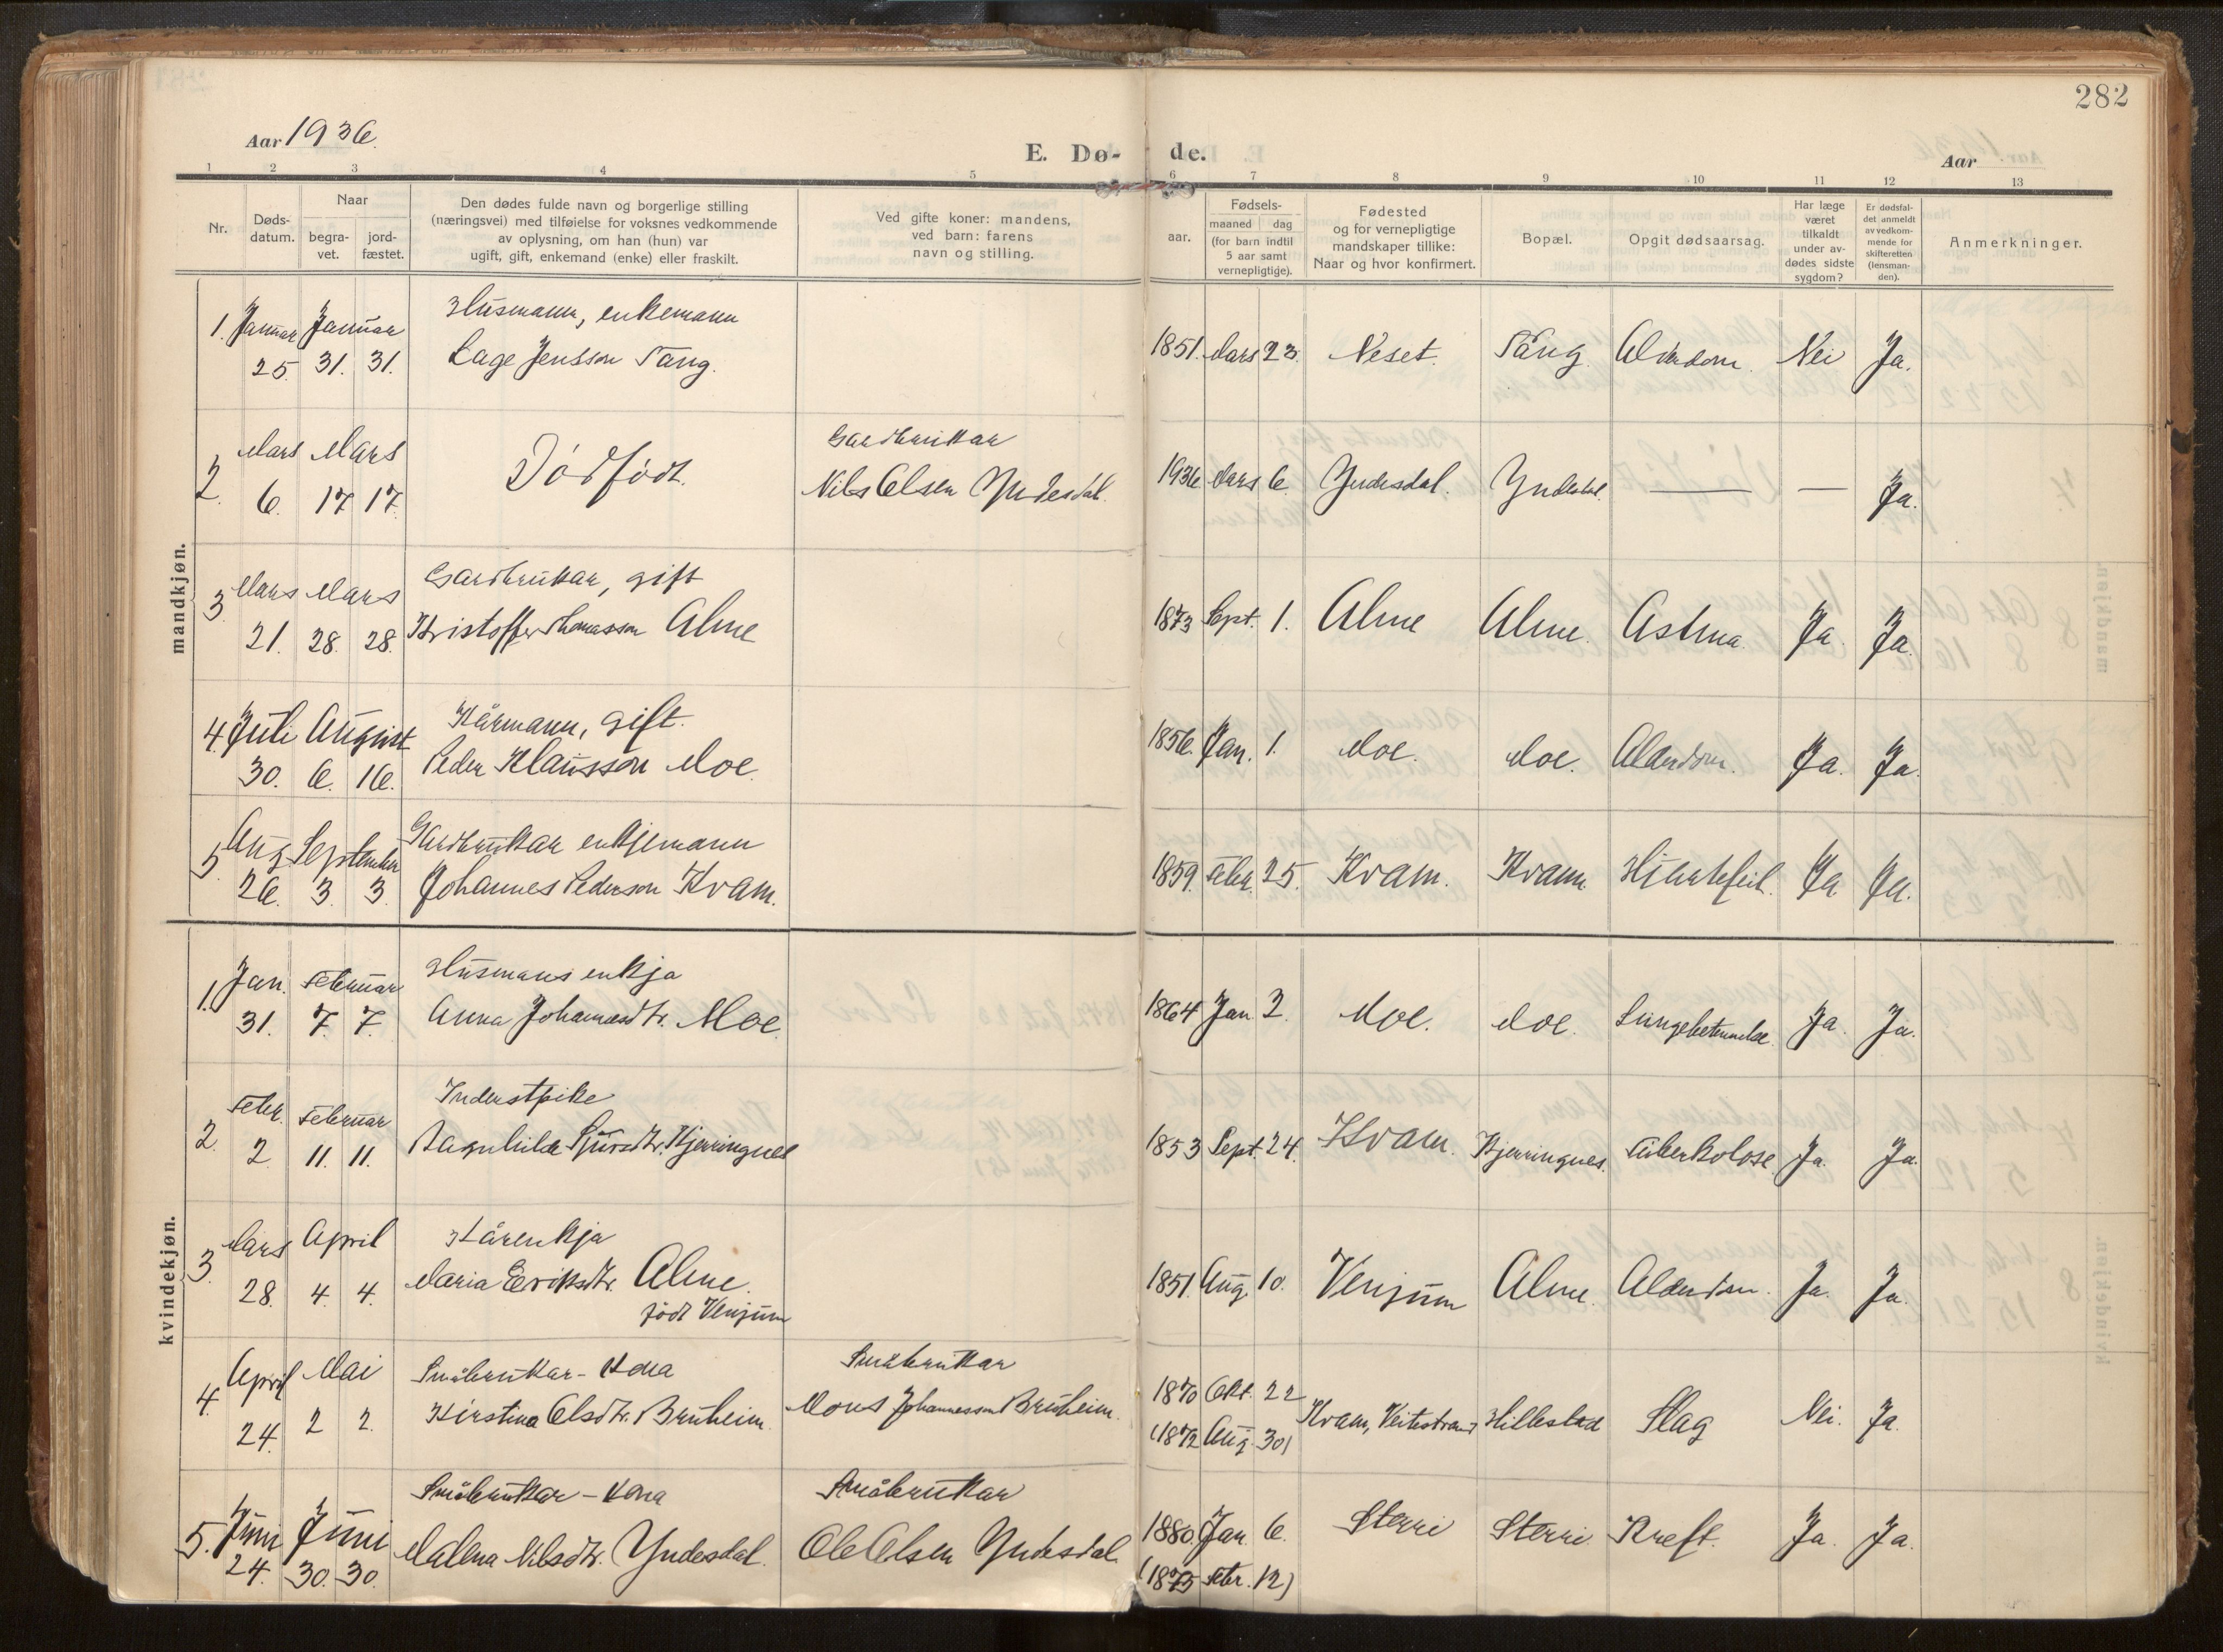 282
Aar 1936.
E. Dø- de.
Aar
1 2 3 4 5 6 7 8 9 10 11 12 13
Nr.
Døds-
datum.
Naar
begra-
vet.
jord-
fæstet.
Den dødes fulde navn og borgerlige stilling
(næringsvei) med tilføielse for voksnes vedkommende
av oplysning, om han (hun) var
ugift, gift, enkemand (enke) eller fraskilt.
Ved gifte koner: mandens,
ved barn: farens
navn og stilling.
Fødsels-
aar. maaned dag
(for barn indtil
5 aar samt
vernepligtige).
Fødested
og for vernepligtige
mandskaper tillike:
Naar og hvor konfirmert.
Bopæl.
Opgit dødsaarsag.
Har læge
været
tilkaldt
under av-
dødes sidste
sygdom?
Er dødsfal-
det anmeldt
av vedkom-
mende for
skifteretten
(lensman-
den).
Anmerkninger.
mandkjøn.
1. Januar Januar Husmann, enkemann
25. 31. 31. Lage Jensson Tang. 1851. Mars 23. Neset. Tang Alderdom. Nei Ja.
2. Mars Mars Gardbrukar
6. 17 17. Dødfødt. Nils Olsen Yndesdal. 1936 Mars 6. Yndesdal. Yndesdal. — — Ja.
3 Mars Mars Gardbrukar, gift
21. 28. 28. Kristoffer Thomasson Alme 1873 Sept. 1. Alme Alme. Astma. Ja. Ja.
4. Juli August Kårmann, gift.
30. 6. 16. Peder Klausson Moe. 1856. Jan. 1. Moe. Moe. Alderdom. Ja. Ja.
5 Aug September Gardbrukar enkjemann
26. 3. 3. Johannes Pederson Kvam. 1859. Febr. 25. Kvam. Kvam Hjertefeil. Ja Ja.
kvindekjøn.
1. Jan. Februar Husmans enkja
31. 7. 7. Anna Johannesdtr. Moe. 1864 Jan. 2. Moe. Moe. Lungebetennelse. Ja. Ja.
2. Febr. Februar Inderstpike
2. 11. 11. Ragnhilda Sjursdtr. Kjerringnes 1853 Sept. 24. Kvam. Kjerringnes. Tuberkolose. Ja. Ja.
3 Mars April Kårenkja
28. 4. 4. Maria Eeriksdtr. Alme. 1851. Aug. 10. Venjum Alme. Alderdom. Ja. Ja.
født Venjum
4. April Mai Småbrukar-kona Småbrukar
24. 2 2. Kirstina Olsdtr. Bruheim. Mons Johannesson Bruheim. 1870 Okt. 22 Kvam, Veitestrand Hillestad Slag Nei. Ja.
(1872 Aug. 30)
5. Juni Juni Småbrukar-kona Småbrukar
24. 30. 30. Malena Nilsdtr. Yndesdal. Ole Olsen Yndesdal. 1880. Jan. 6. Sterri Sterri Kreft. Ja. Ja.
(1875 Febr. 12)